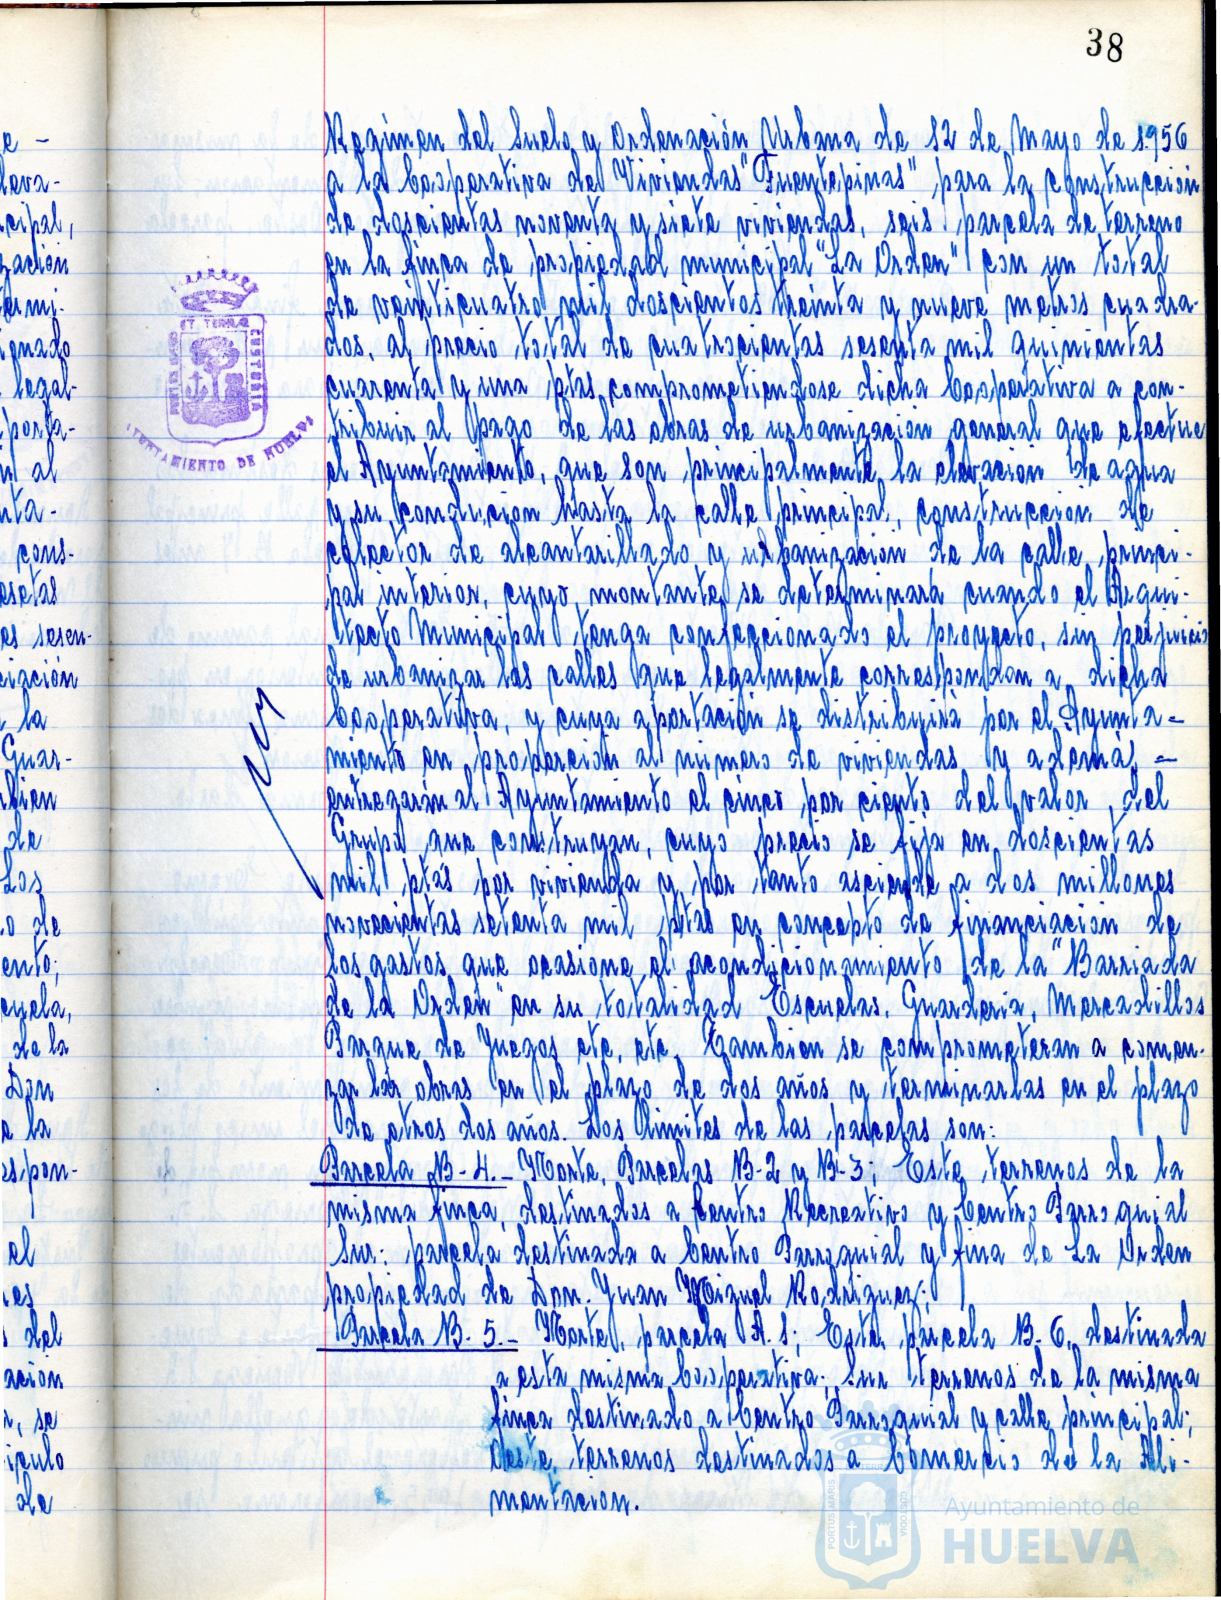 38
Regimen del Suelo y Ordenación Urbana de 12 de Mayo de 1.956
a la Cooperativa de Viviendas "Fuentepinas", para la construcción
de doscientas noventa y siete viviendas, seis parcela de terreno
en la finca de propiedad municipal "La Orden" con un total
de veinticuatro mil doscientos treinta y nueve metros cuadra-
dos, al precio total de cuatrocientas sesenta mil quinientas
cuarenta y una ptas, comprometiendose dicha Cooperativa a con-
tribuir al pago de las obras de urbanización general que efectue
el Ayuntamiento, que son principalmente la elevación de agua
y su conducion hasta la calle principal, construccion de
colector de alcantarillado y urbanización de la calle princi-
pal interior, cuyo montante se determinará cuando el Arqui-
tecto Municipal tenga confeccionado el proyecto, sin perjuicio
de urbanizar las calles que legalmente correspondan a dicha
Cooperativa, y cuya aportación se distribuirá por el Ayunta-
miento en proporción al número de viviendas y además -
entregarán al Ayuntamiento el cinco por ciento del valor del
Grupo que construyan, cuyo precio se fija en doscientas
mil ptas por vivienda y por tanto asciende a dos millones
novecientas setenta mil ptas en concepto de financiación de
los gastos que ocasione el acondicionamiento de la "Barriada
de la Orden" en su totalidad Escuelas, Guarderia, Mercadillos
Parque de Juegos etc, etc, Tambien se comprometeran a comen-
zar las obras en el plazo de dos años y terminarlas en el plazo
de otros dos años. Los limites de las parcelas son:
Parcela B-4.- Norte, Parcelas B-2 y B-3; Este, terrenos de la
misma finca, destinados a Centro Recreativo y Centro Parroquial
Sur; parcela destinada a Centro Parroquial y fina de La Orden
propiedad de Don Juan Miguel Rodriguez;
Parcela B-5.- Norte, parcela A.1; Este, parcela B-6, destinada
a esta misma Cooperativa; Sur terrenos de la misma
finca destinado a Centro Parroquial y calle principal;
Oeste, terrenos destinados a Comercio de la Ali-
mentación.
e -
leva-
cipal,
zación
ermi-
onado
legal-
porta-
al
nta-
cons-
esetas
es sesen-
ciación
la
Guar-
bien
de
Los
o de
ento;
cuela,
de la
Don
e la
espon-
el
es
del
ación
, se
iculo
de
PORTUS MARIS ET TERRAE CUSTODIA
AYUNTAMIENTO DE HUELVA
Ayuntamiento de
HUELVA